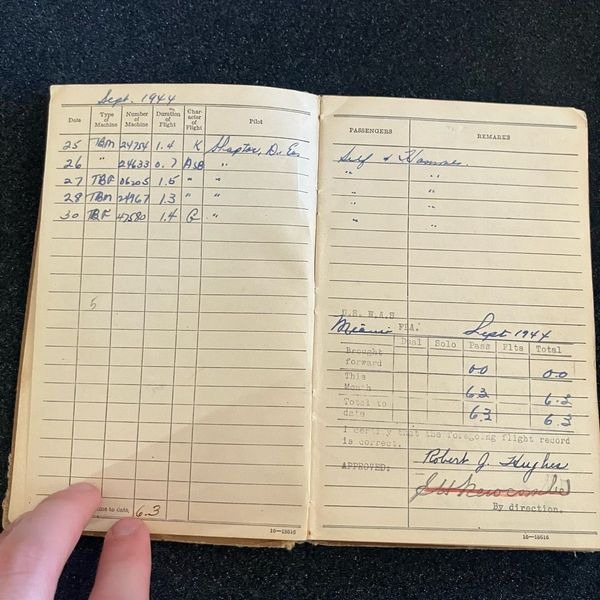 Sept. 1944
Date Type of Machine Number of Machine Duration of Flight Char- acter of Flight Pilot
25 TBM 24754 1.4 K
26 " 24633 0.7 ASB "
27 TBF 06205 1.5 " "
28 TBM 24967 1.3 " "
30 TBF 47580 1.4 G "
5
time to date, 6.3
16—18516
PASSENGERS REMARKS
Self &
" "
" "
" "
" "
U.S. N.A.S
Miami FLA. Sept 1944
Dual Solo Pass Flts Total
Brought forward 0.0 0.0
This Month 6.3 6.3
Total to date 6.3 6.3
I certify that the foregoing flight record
is correct.
Robert J. Hughes
APPROVED:
By direction.
16—18516